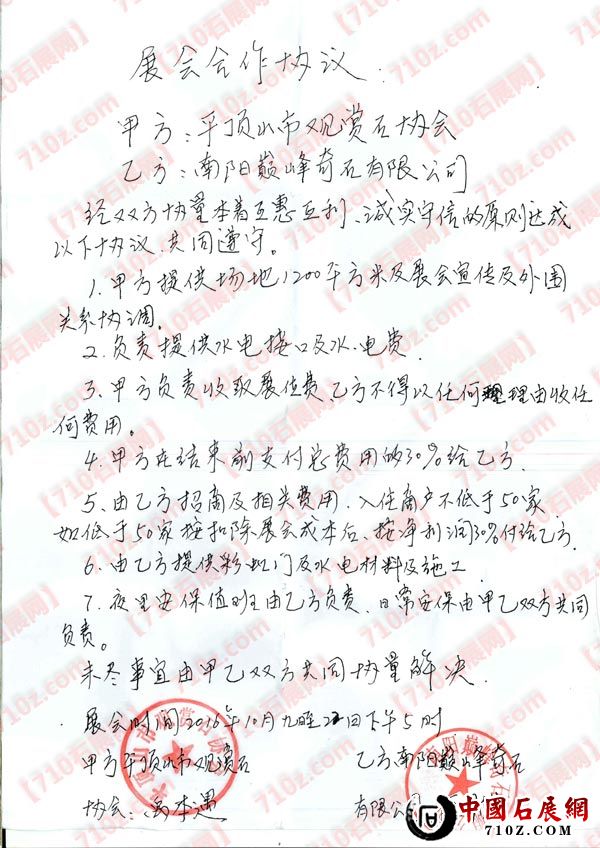 展会合作协议.
甲方：平顶山市观赏石协会
乙方：南阳巅峰奇石有限公司
经双方协量本着互惠互利、诚实守信的原则达成
以下协议.共同遵守。
1.甲方提供场地1200平方米及展会宣传及外围
关系协调。
2.负责提供水电接口及水.电费.
3.甲方负责收取展位费.乙方不得以任何理由收任
何费用。
4.甲方在结束前支付总费用的30%给乙方.
5.由乙方招商及相关费用.入住商户不低于50家.
如低于50家按扣除展会成本后.按净利润30%付给乙方.
6.由乙方提供彩虹门及水电材料及施工.
7.夜里安保值班由乙方负责.日常安保由甲乙双方共同
负责。
未尽事宜由甲乙双方共同协量解决.
展会时间2016年10月 日下午5时
甲方平顶山市观赏石
协会：
乙方:南阳巅峰奇石
有限公司
中國石展網
710z.com
【710石展网】
710z.com